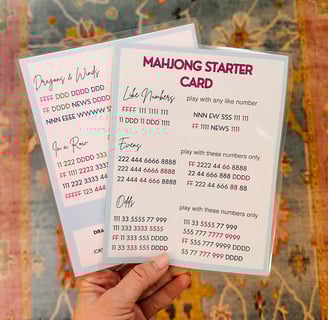 Dragons & Winds
FFFF DDD DDDD DDD
FF DDDD NEWS DDDD
NNN EEEE WWWW S
In a Row
11 222 DDDD 333
FF 1111 2222 33
111 222 3333 44
FFFFF 123 444
DRA
MAHJONG STARTER
CARD
Like Numbers
play with any like number
FFFF 111 1111 111
NNN EW SSS 111 111
11 DDD 11 DDD 1111
FF 1111 NEWS 1111
Evens
play with these numbers only
222 444 6666 8888
FF 2222 44 66 8888
222 444 6666 8888
22 444 66 888 DDDD
22 444 44 666 8888
FF 222 44 666 88 88
Odds
play with these numbers only
111 33 5555 77 999
111 33 5555 77 999
111 333 3333 5555
555 777 7777 9999
11 33 333 555 DDDD
FF 555 777 9999 DDDD
11 33 333 555 DDD
55 77 777 999 DDDD